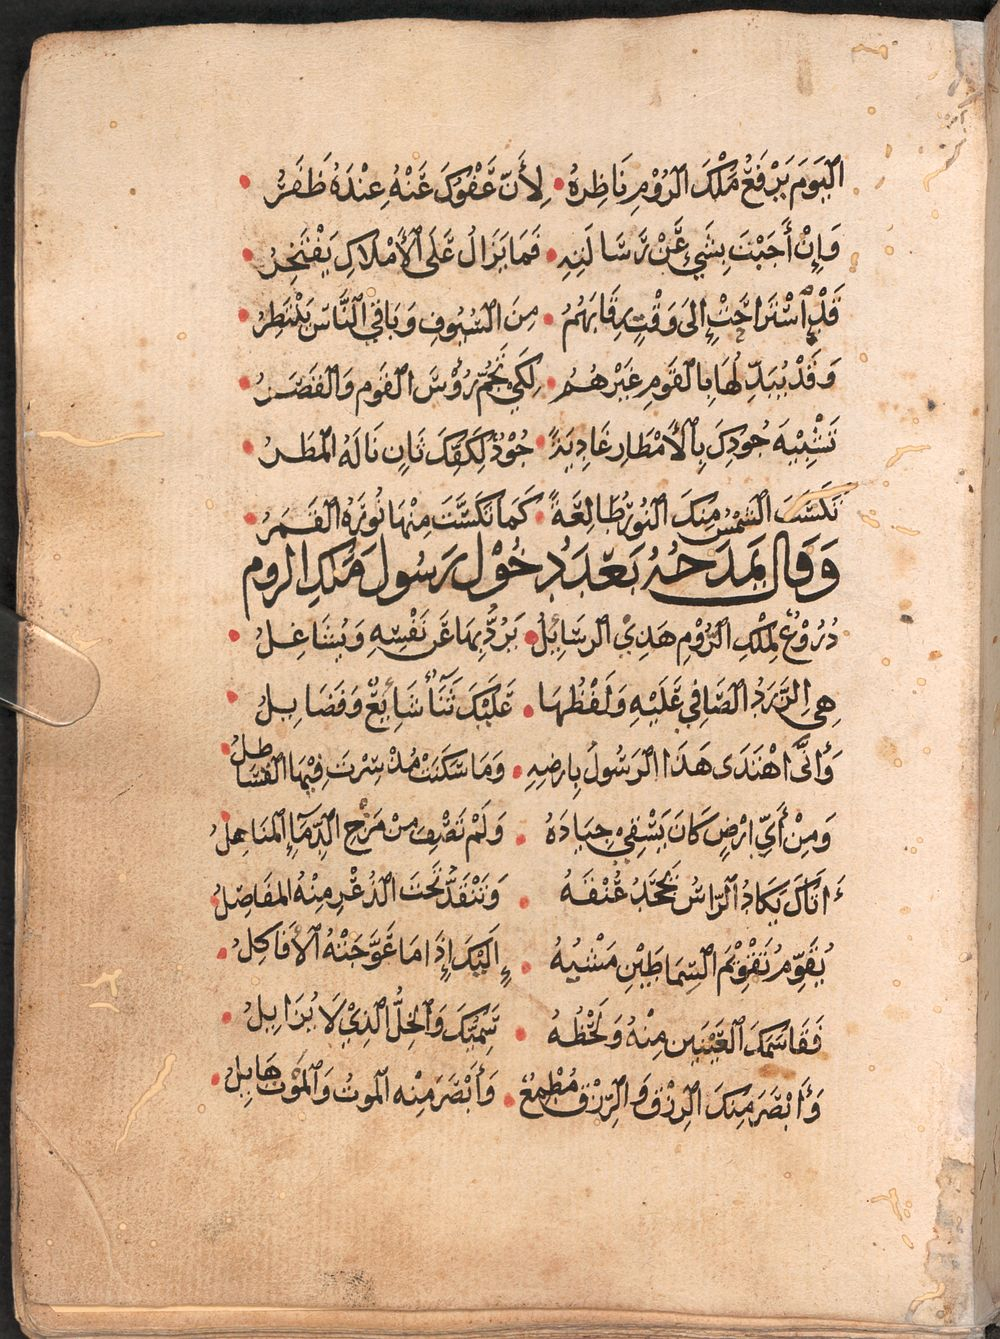 اَليَومَ يَرْفَعُ مَلْكَ الرُوْمِ نَاظِرهُ • لِأَنّ عَفْوُكَ عَنْهُ عِنْدَهُ ظَفَرُ •
وَإِنْ أَجَبْتَ بِشَيءٍ عَنْ رَسَالَتِهِ • فَمَا يَزَالُ عَلَى الأَمْلاكِ يَفْتَخِرُ •
قَدِ اسْتَرَاحَتْ إِلى وَقْتٍ رِقَابَهُمُ • مِنَ السُيُوفِ وَبَاقِي النَّاسِ يَنْتَظِرُ •
وَقَدْ يُبَدِّلُهَا بِالقَومِ غَيْرهُمُ • لِكَي تَجُمّ رُؤْسَ القَوم وَالقَصَرُ •
تَشْبِيْهَ جُودِكَ بِالأَمْطَارِ غَادِيَةً • جُوْدٌ لِكَفِّكَ ثَانٍ نَالَهُ المَطَرُ •
تَكَسَّبَ الشَمْسُ مِنكَ النُورُ طَالِعَةً • كَمَا تَكَسَّبَ مِنْهَا نُورَهُ القَمَرُ •
وَقَال يَمدَحُهُ بَعْدَ دُخُوْل رَسُول مَلكِ الروم
دُرُوْعٌ لِمَلْكِ الرُّوْمِ هَذِي الرسَايِلُ • يَرُدُّ بِهَا عَن نَفْسِهِ وَيُشَاغِلُ •
هِي الزَرَدُ الضَافِي عَلَيْهِ وَلَفْظُهَا • عَلَيْكَ ثَنَاءٌ سَابِغٌ وَفَضَايِلُ •
وَأَنَّى اهْتَدَى هَذَا الرَسُولُ بِارضِهِ • وَمَا سَكَنَتْ مُذْ سِرْتَ فِيْهَا القَسَاطِلُ •
وَمِنْ أَيِّ ارْضٍ كَانَ يَسْقِي جِيَادَهُ • وَلَمْ تَصْفُ مِنْ مَزْجِ الدِّمَاءِ المَنَاهِلُ •
أَتَاكَ يَكَادُ الرَاسُ يَجْحَدُ عُنْقَهُ • وَتَنْقَدُّ تَحْتَ الذُعْرِ مِنْهُ المفَاصِلُ •
يُقَوِّمُ تَقْوِيْمَ السِمَاطَيْنِ مَشْيَهُ • إِلَيْكَ إِذَا مَا عَوَّجَتْهُ الأَفَاكِلُ •
فَقَاسَمَكَ العَيْنَيْنِ مِنْهُ وَلَحْظَهُ • سَمِيُّكَ وَالخِلُّ الذِيْ لَا يُزَايِلُ •
وَأَبْصَرَ مِنكَ الرِزْقَ وَالرِزْقُ مُطْمِعٌ • وَأَبْصَرَ مِنْه الموتُ وَالمَوْتُ هَايِلُ •